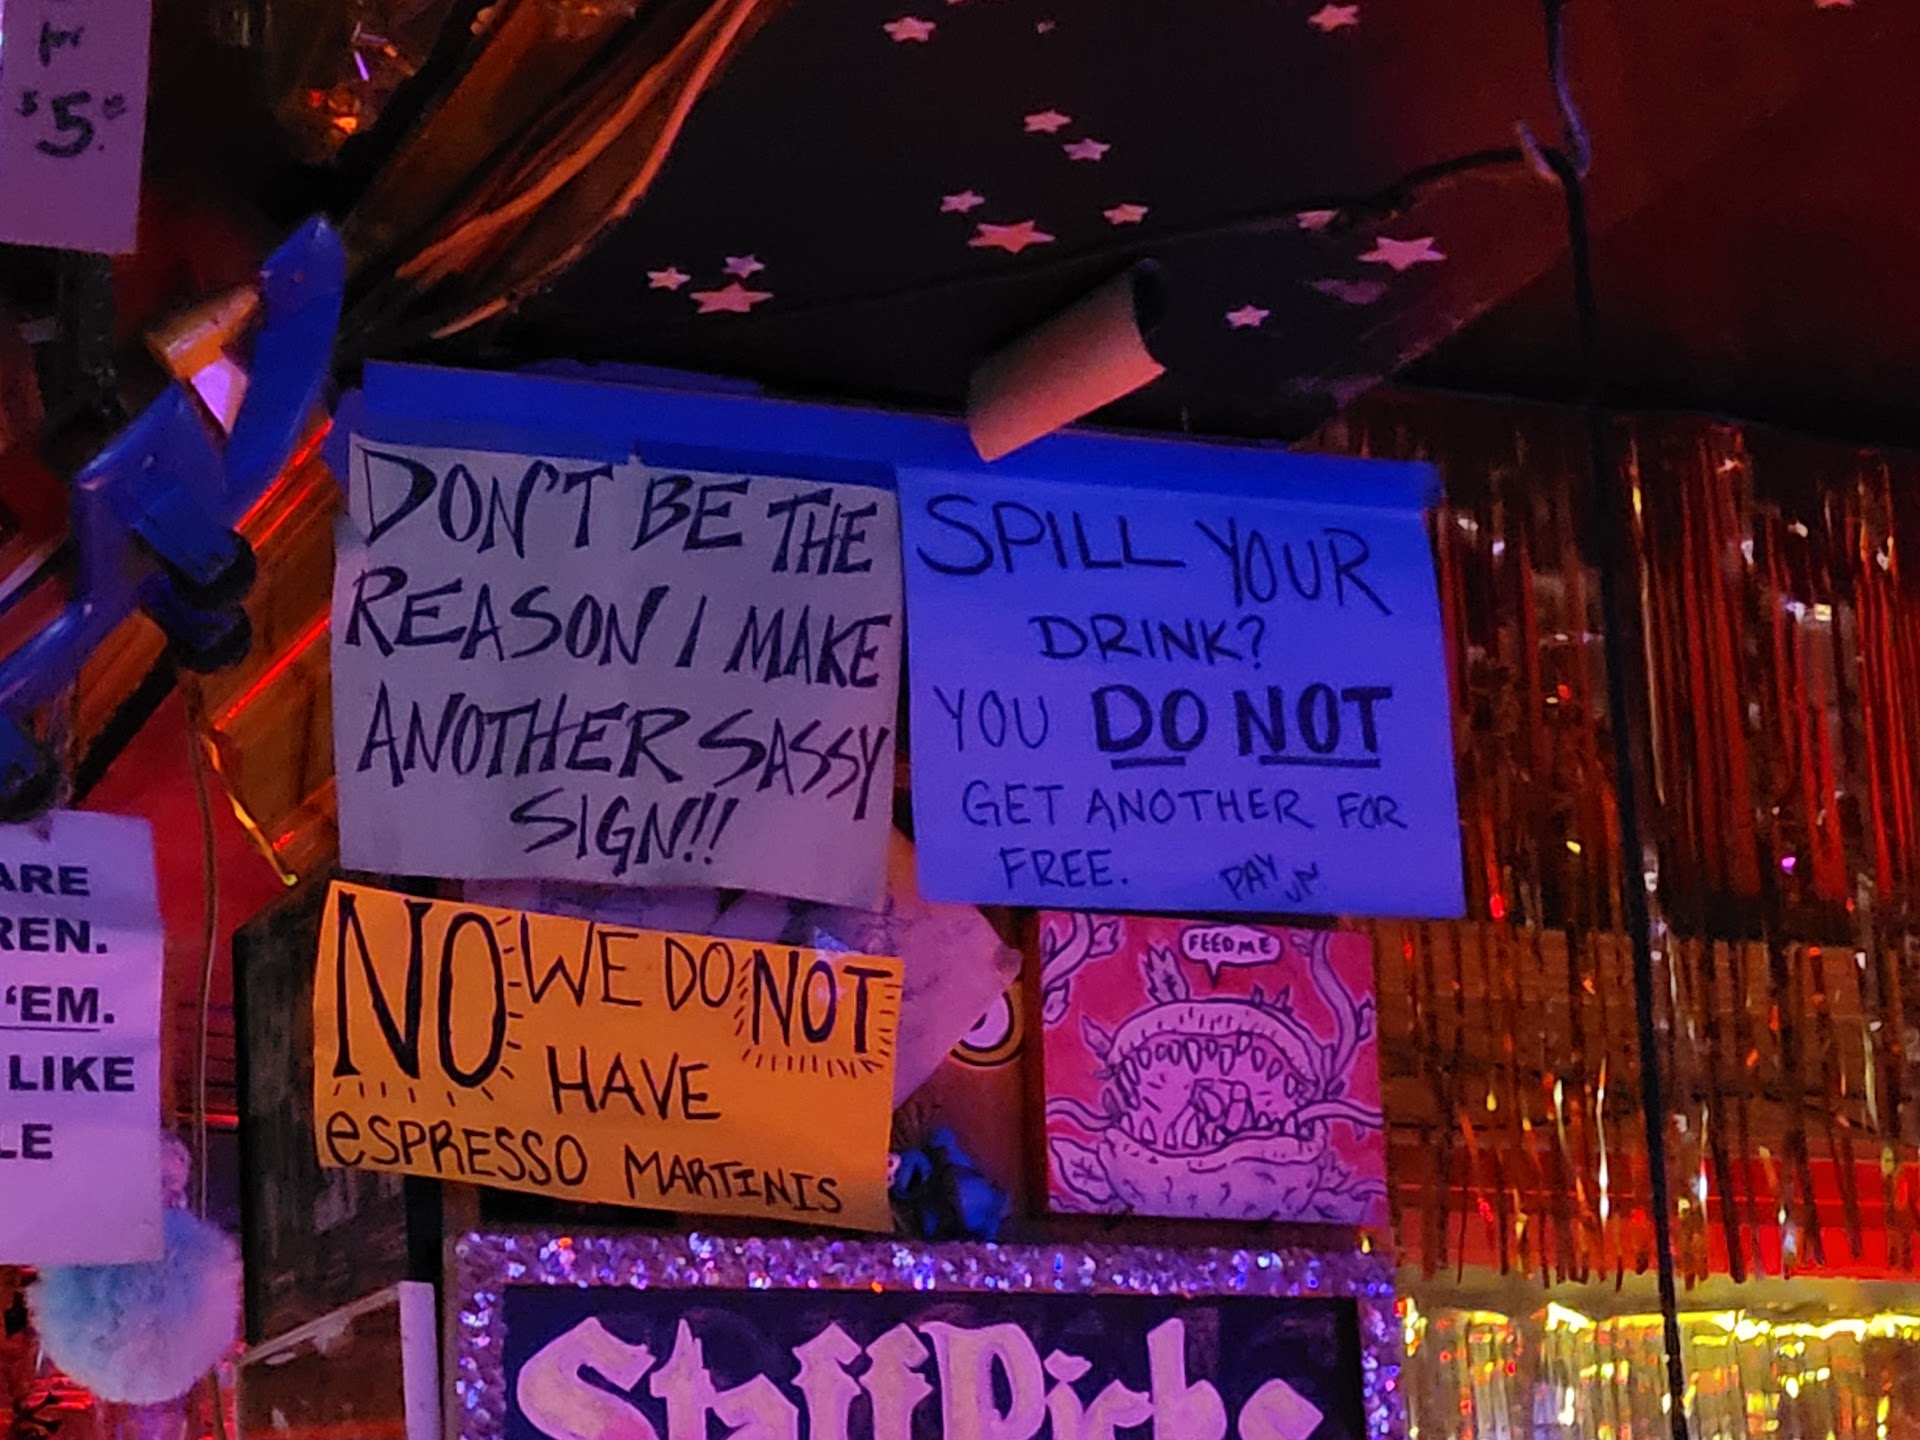 for
$5.
DON'T BE THE
REASON I MAKE
ANOTHER SASSY
SIGN!!!
SPILL YOUR
DRINK?
YOU DO NOT
GET ANOTHER FOR
FREE. PAY UP!
NO WE DO NOT
HAVE
eSPRESSO MARTINIS
FEED ME
ARE
REN.
'EM.
LIKE
LE
Staff Picks